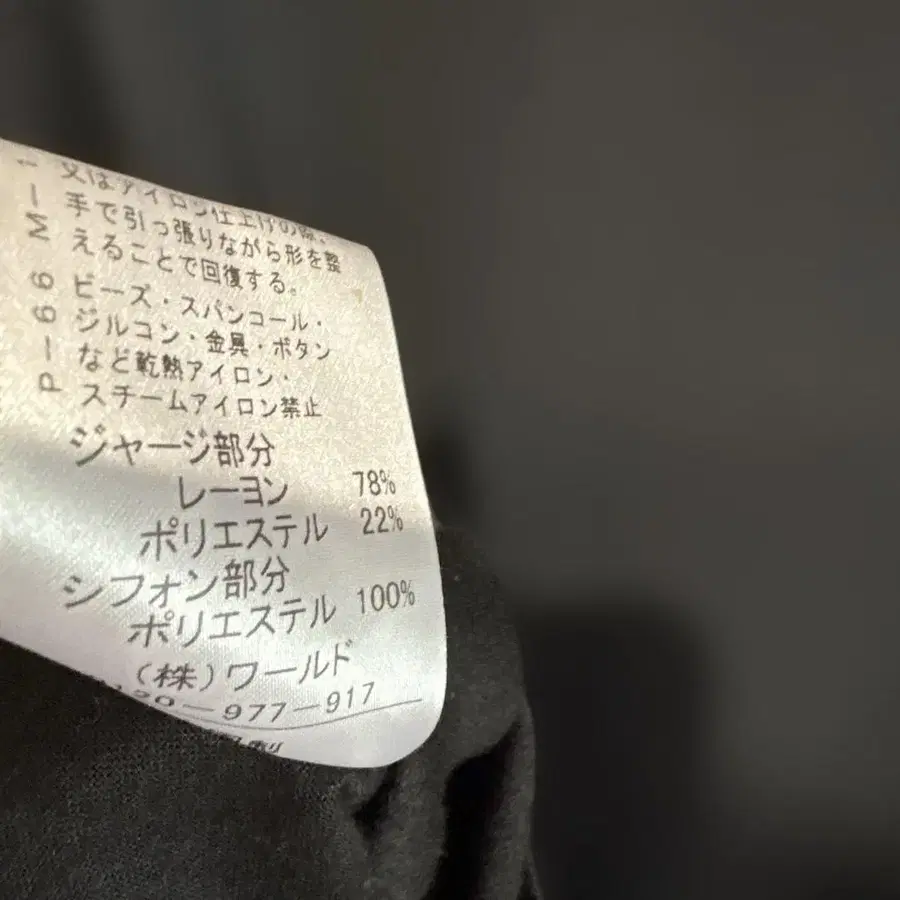 又はアイロン仕上げの際、
手で引っ張りながら形を整
えることで回復する。
ビーズ・スパンコール・
ジルコン・金具・ボタン
など乾熱アイロン・
スチームアイロン禁止
ジャージ部分
レーヨン 78%
ポリエステル 22%
シフォン部分
ポリエステル 100%
(株)ワールド
120-977-917
製
P-66 M-1